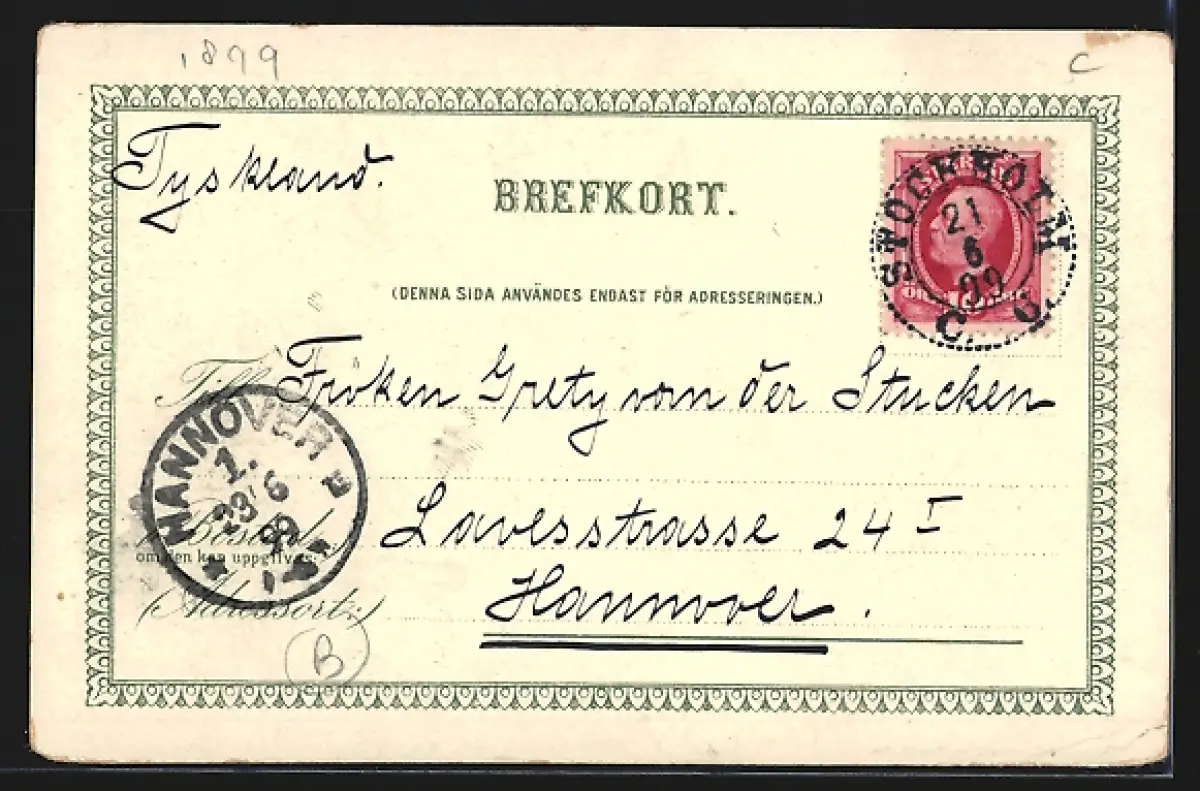 1899
C
Tyskland.
BREFKORT.
STOCKHOLM
21
6
99
C. C.
(DENNA SIDA ANVÄNDES ENDAST FÖR ADRESSERINGEN.)
Till Fröken Grety von der Stucken
HANNOVER
1.
23/6
99
Lavesstrasse 24 I
(Bostad:)
om den kan uppgifvas
Hannover.
(Adressort:)
B